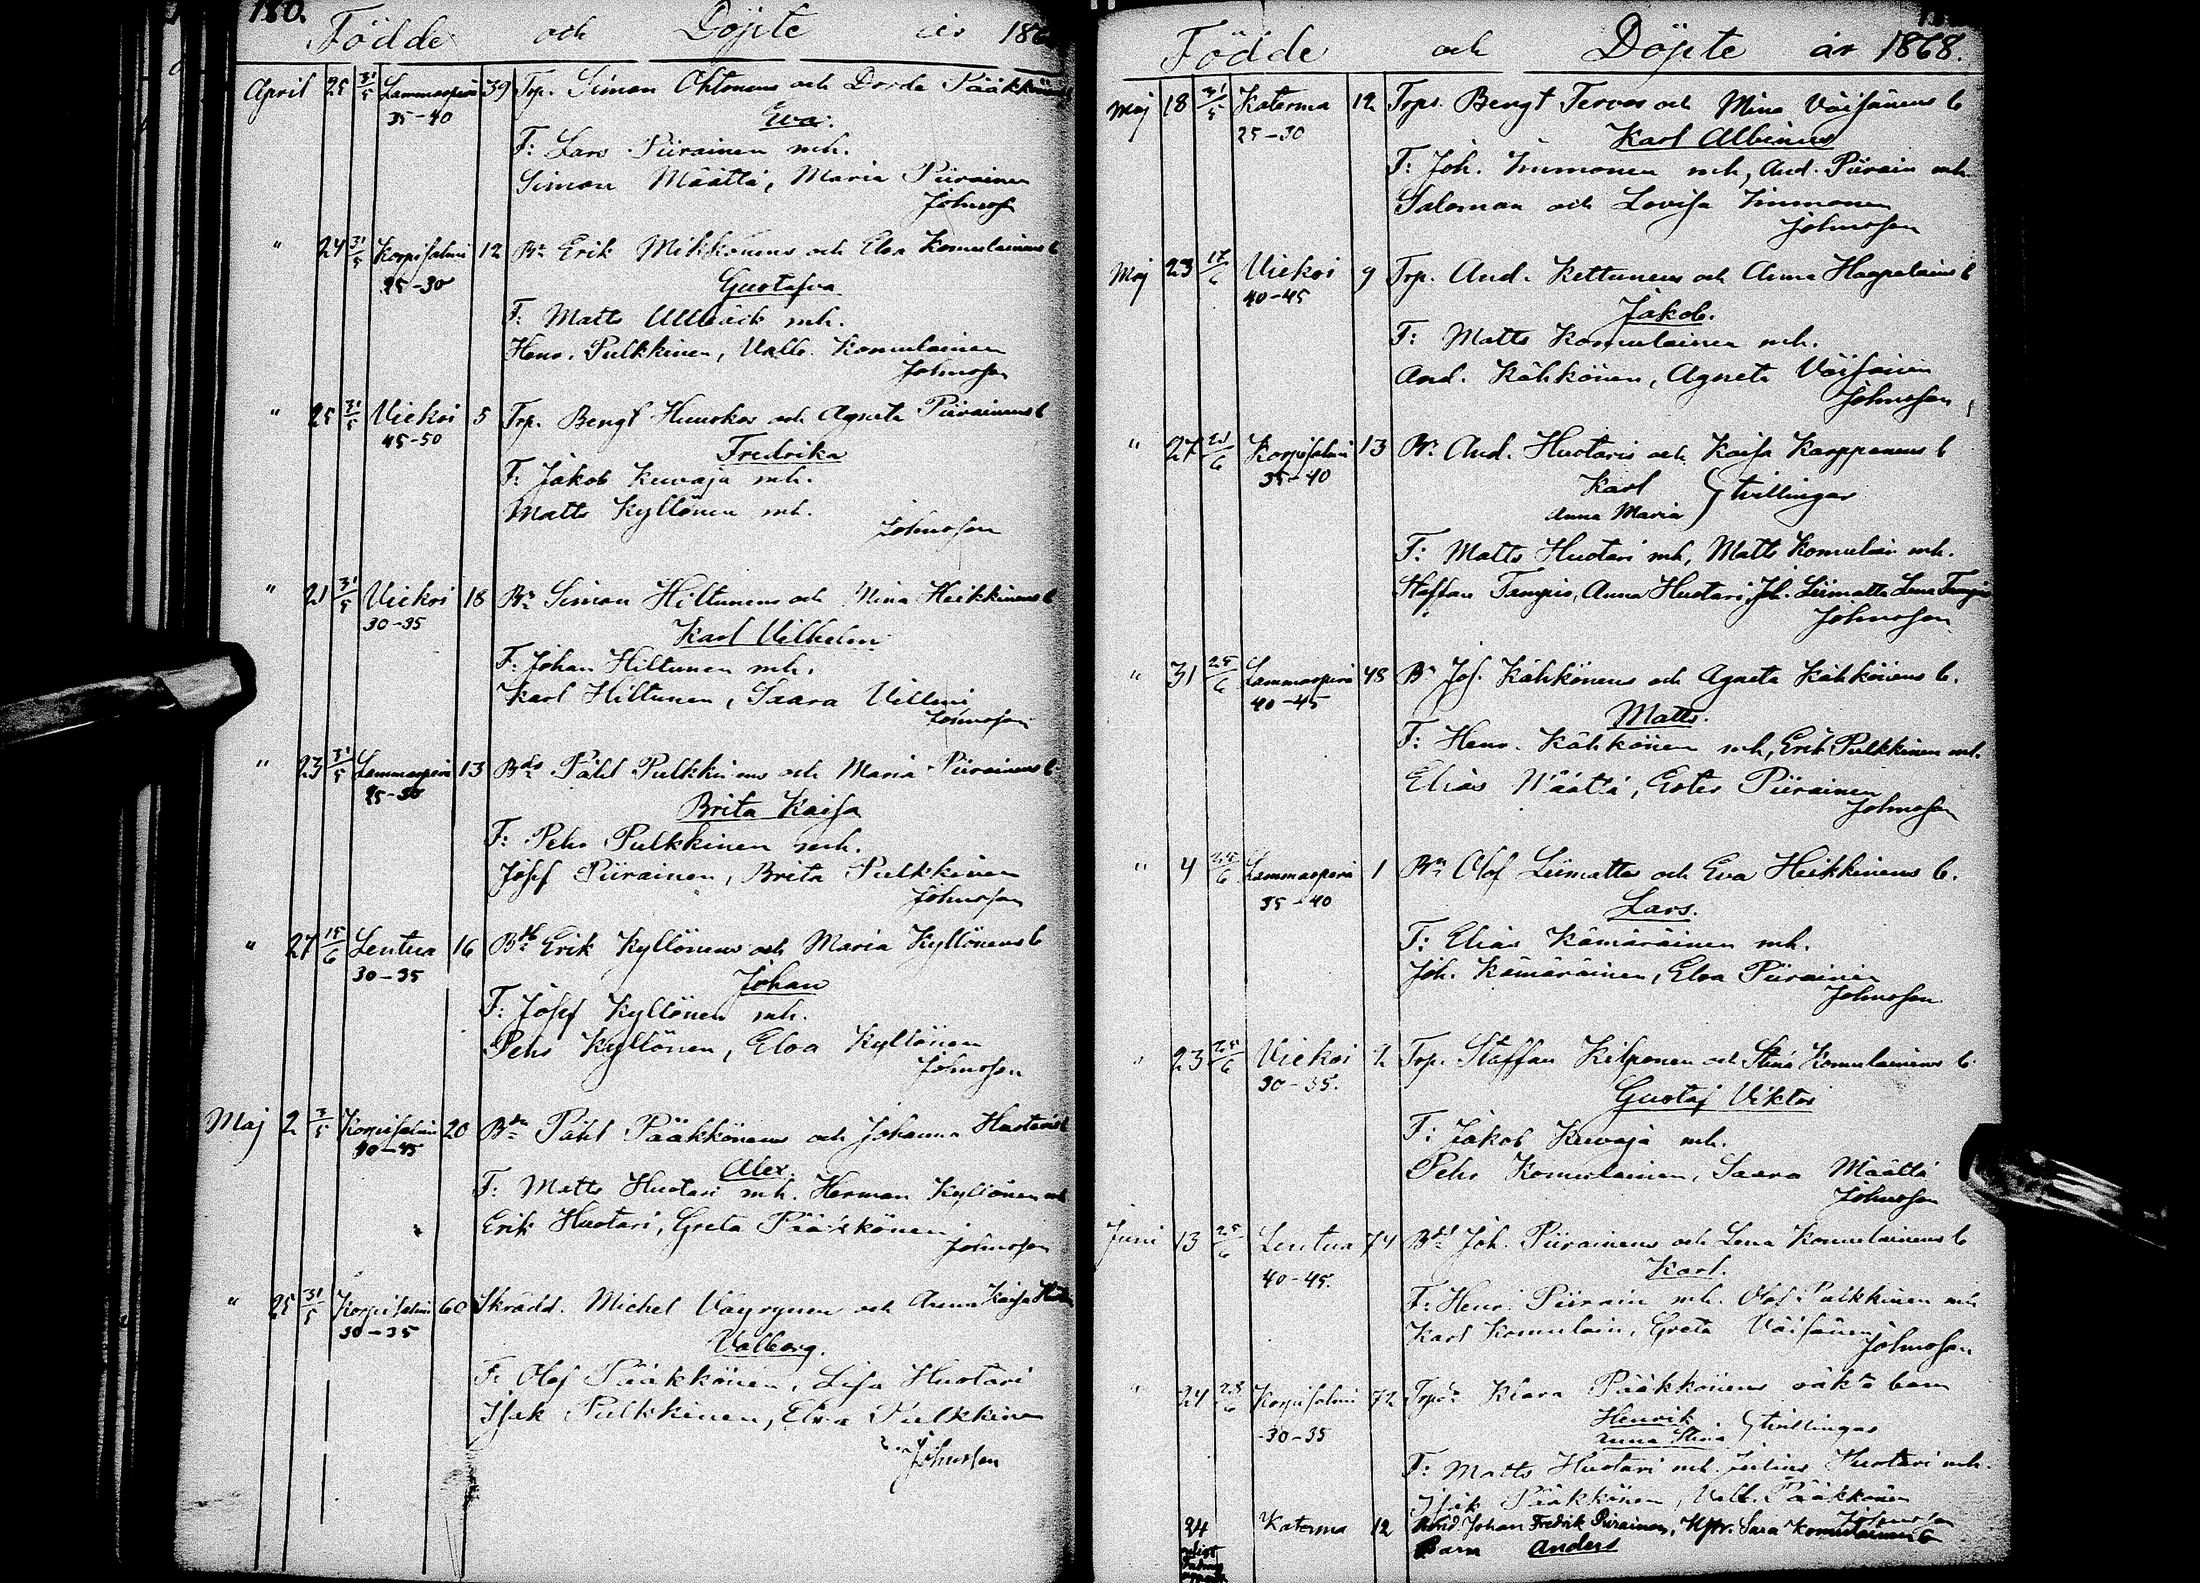 180.
Födde och Döpte år 186
April 25 31/5 Lammasperä 39 Trp. Simon Ohtonens och Dorde Pääkkönens
35-40
Eva.
F: Lars Piirainen mh.
Simon Määttä, Maria Piirainen
Johnsson
" 24 31/5 Korpisalmi 12 Bn Erik Mikkonens och Elva Komulainens b
25-30
Gustafva
F: Matts mh.
Henr. Pulkkinen, Valb. Komulainen
Johnsson
" 25 31/5 Viekoi 5 Trp. Bengt Huuskos och Agneta Piirainens b
45-50
Fredrika
F: Jakob Kuvaja mh.
Matts Kyllönen mh.
Johnsson
" 21 31/5 Viekoi 18 Bn Simon Hiltunens och Mina Heikkinens b
30-35
Karl Vilhelm
F: Johan Hiltunen mh.
Karl Hiltunen, Saara
Johnsson
" 23 31/5 Lammasperä 13 Påhl Pulkkinens och Maria Piirainens b
25-30
Brita Kaisa
F: Pehr Pulkkinen mh.
Josef Piirainen, Brita Pulkkinen
Johnsson
" 27 15/6 Lentua 16 Erik Kyllönens och Maria Kyllönens b
30-35
Johan
F: Josef Kyllönen mh.
Pehr Kyllönen, Elva Kyllönen
Johnsson
Maj 2 3/5 Korpisalmi 20 Påhl Pääkkönens och Johanna Huotaris
40-45
Alex.
F: Matts Huotari mh. Herman Kyllönen mh
Erik Huotari, Greta Pääkkönen
Johnsson
" 25 31/5 Korpisalmi 60 Skrädd. Michel Väyrynen och Anna Kaisa
30-35
Valborg.
F: Olof Pääkkönen, Lisa Huotari
Isak Pulkkinen, Elva Pulkkinen
Johnsson
Födde och Döpte år 1868.
Maj 18 31/5 Katerma 12 Trps. Bengt Tervos och Mina Väisänens b
25-30
Karl Albinus
F: Joh. Immonen mh, And. Piirain mh.
Saloman och Lovisa Immonen
Johnsson
Maj 23 17/6 Viekoi 9 Trp. And. Kettunens och Anna Haapalains b
40-45
Jakob.
F: Matts Komulainen mh.
And. Kähkönen, Agneta Väisänen
Johnsson
" 27 21/6 Korpisalmi 13 Bn And. Huotaris och Kaisa Karppanens b
35-40
Karl } tvillingar
Anna Maria
F: Matts Huotari mh, Matts Komulain mh.
Staffan Tampio, Anna Huotari, Joh. Liimatta Lena Tampio
Johnsson
" 31 25/6 Lammasperä 48 Bn Jos. Kähkönens och Agneta Kähkönens b.
40-45
Matts.
F: Henr. Kähkönen mh, Erik Pulkkinen mh.
Elias Määttä, Ester Piirainen
Johnsson
" 4 25/6 Lammasperä 1 Bn Olof Liimattas och Eva Heikkinens b.
35-40
Lars.
F: Elias Kämäräinen mh.
Joh. Kämäräinen, Elva Piirainen
Johnsson
" 23 25/6 Viekoi 2 Trp. Staffan Kilponen och Stina Komulainens b
30-35.
Gustaf Viktor
F: Jakob Kuvaja mh.
Pehr Komulainen, Saara Määttä
Johnsson
Juni 13 25/6 Lentua 74 Joh. Piirainens och Lena Komulainens b
40-45.
Karl.
F: Henr. Piirain mh. Olof Pulkkinen mh
Karl Komulain, Greta Väisänen
Johnsson
" 24 28/6 Korpisalmi 72 Klara Pääkkönens oäkta barn
30-35
Henrik } tvillingar
Anna Stina
F: Matts Huotari mh. Julius Huotari mh.
Isak Pääkkönen, Valb. Pääkkönen
Johnsson
24 Katerma 12 Johan Fredrik Piirainen, Hstr. Sara Komulainens b
Barn Anders